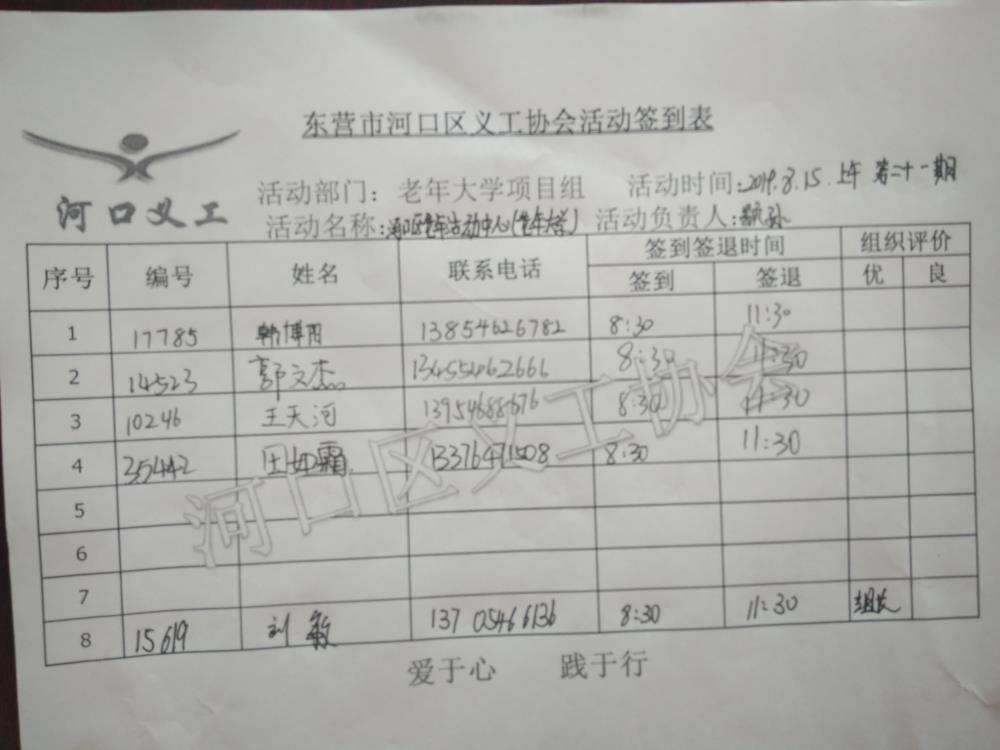 东营市河口区义工协会活动签到表
河口义工
活动部门： 老年大学项目组 活动时间：2019.8.15.上午 第二十一期
活动名称：河口区老年活动中心(老年大学) 活动负责人：
序号 编号 姓名 联系电话 签到签退时间 组织评价
签到 签退 优 良
1 17785 韩博月 13854626782 8:30 11:30
2 14523 郭文杰 13455462666 8:30 11:30
3 10246 王天河 13954688676 8:30 11:30
4 35442 田如霜 13376471508 8:30 11:30
5
6
7
8 15619 刘敏 13705466136 8:30 11:30 组长
爱于心 践于行
河口区义工协会